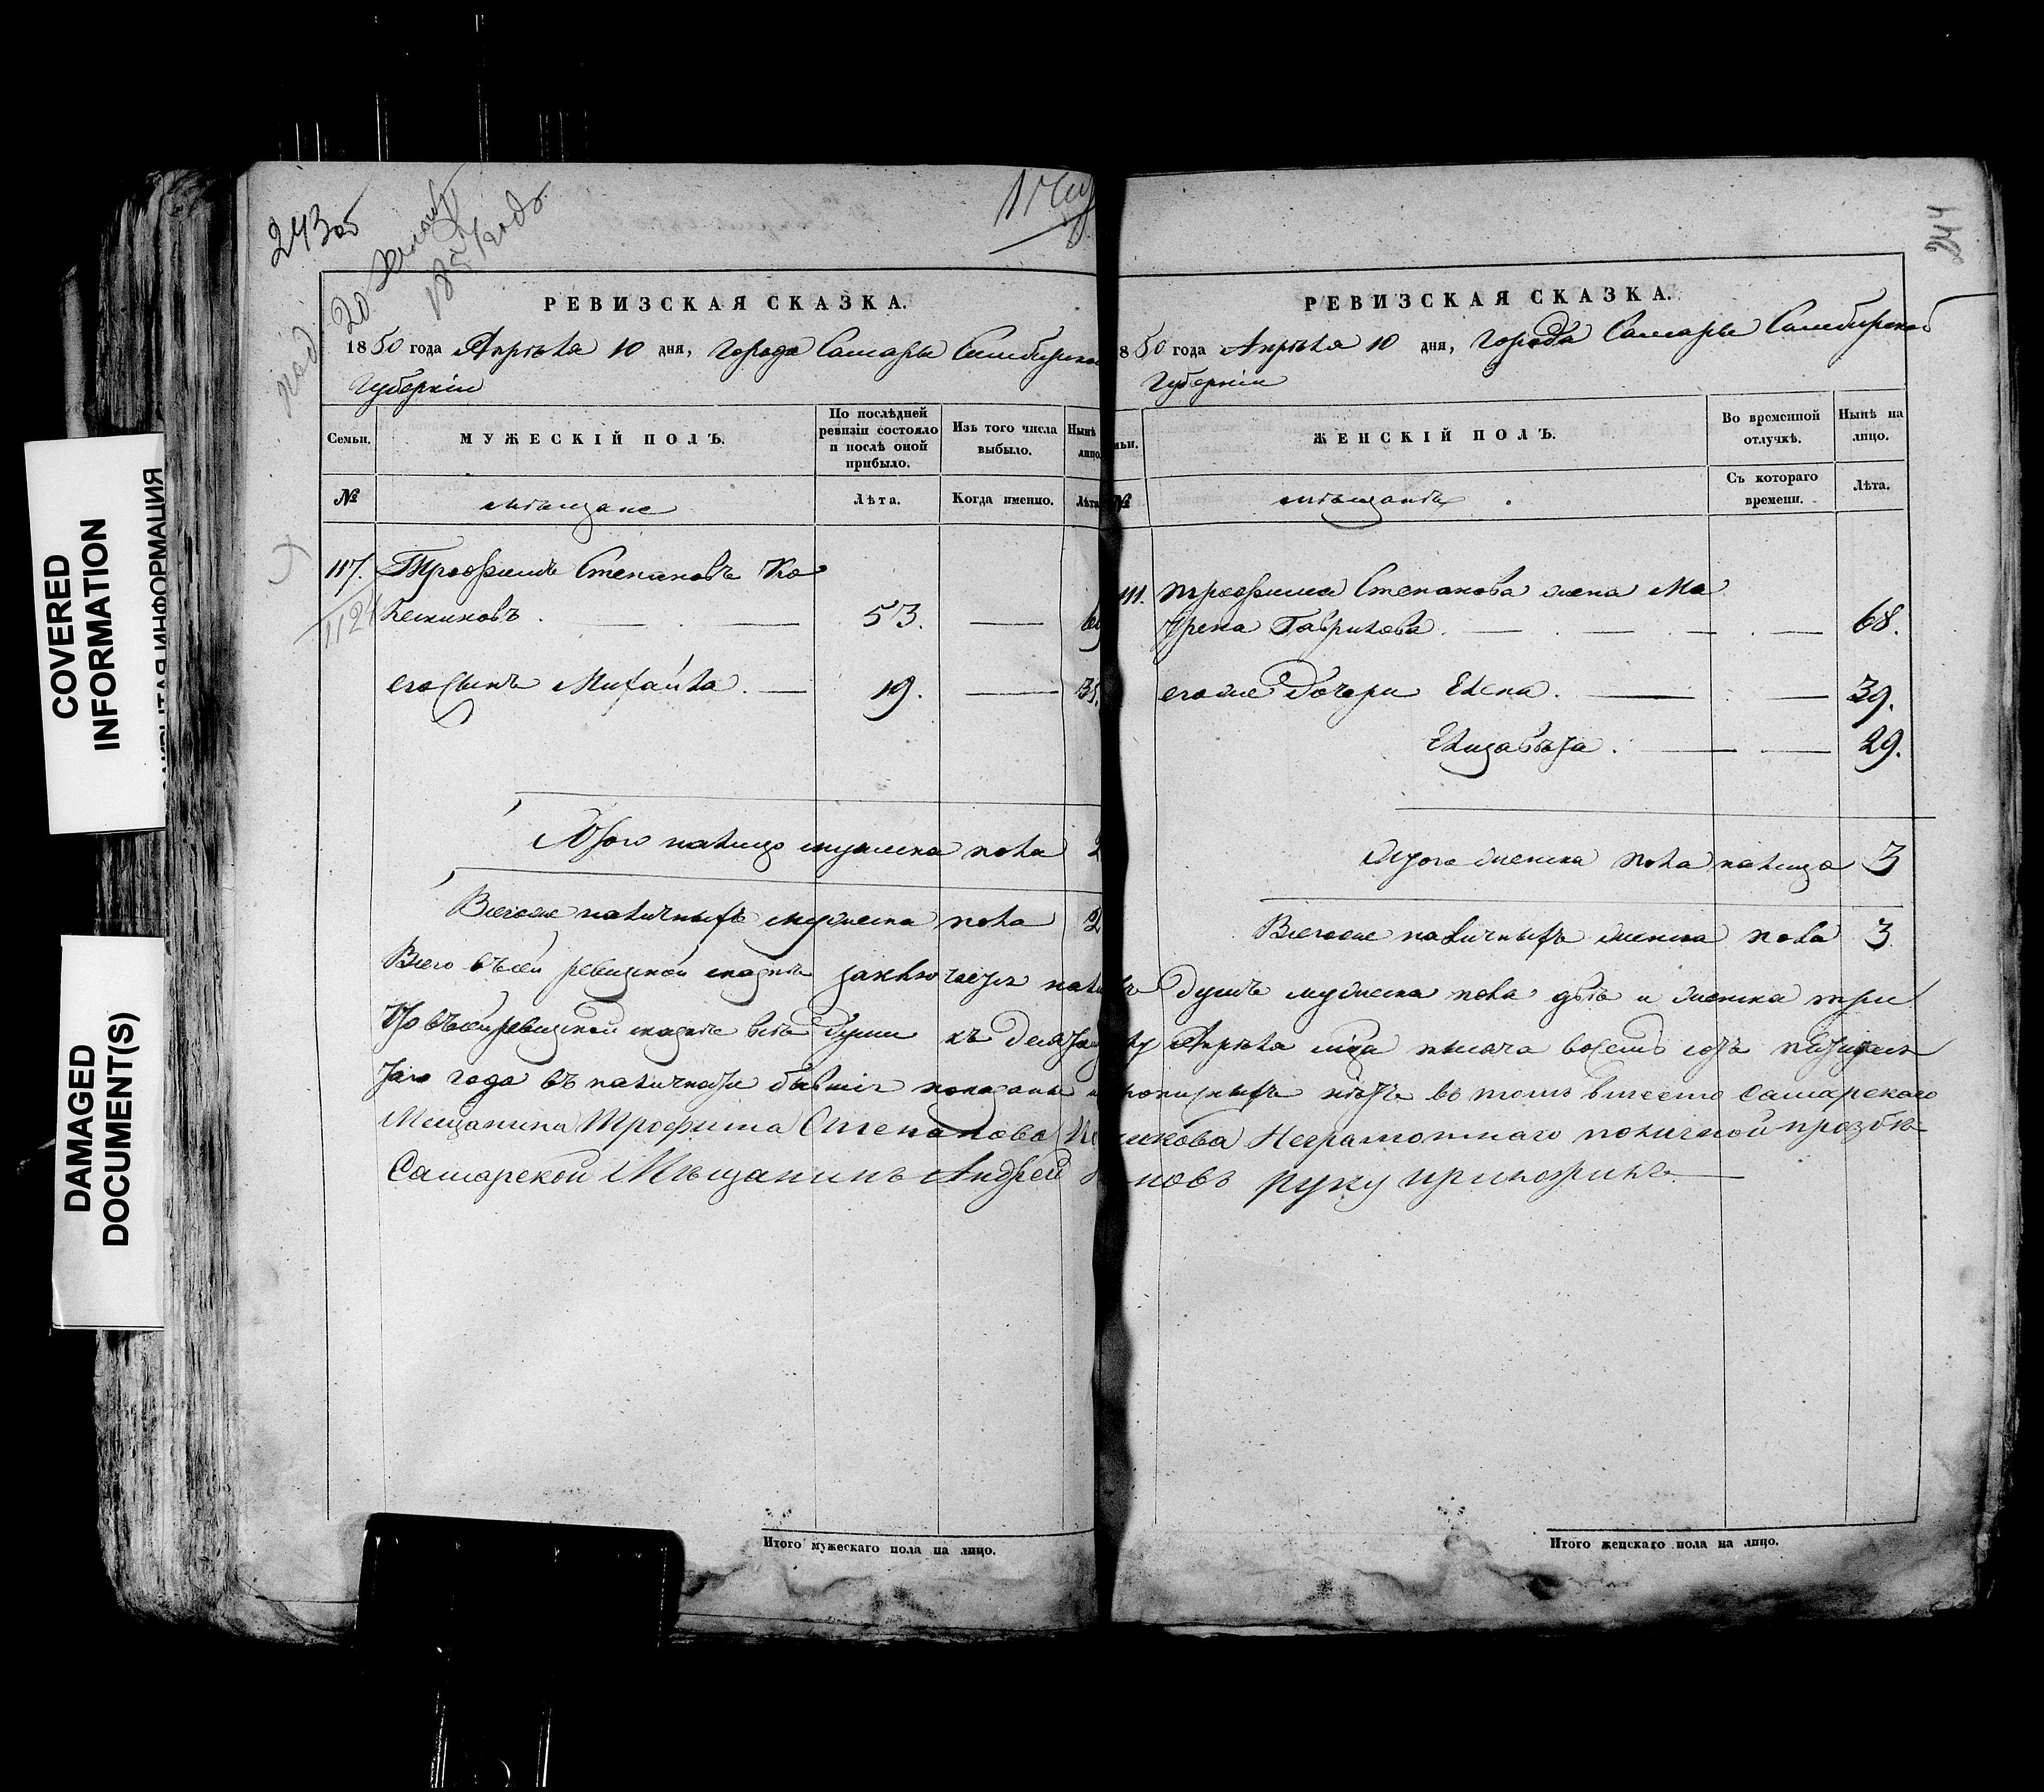 COVERED
INFORMATION
DAMAGED
DOCUMENT(S)
243 об
под. 20 1850 года
РЕВИЗСКАЯ СКАЗКА.
1850 года Апрѣля 10 дня, Города Самары Симбирско
Губерніи
Семьи.
МУЖЕСКІЙ ПОЛЪ.
По послѣдней
ревизіи состояло
и послѣ оной
прибыло.
Изъ того числа
выбыло.
Нынѣ
лицо.
№
мѣщане
Лѣта.
Когда именно.
Лѣта
117. Трофимъ Степановъ Ко
1124 53.
его сынъ Михайла. 19. 35.
Итого налицо мужеска пола 2
Всегоже наличныхъ мужеска пола 2
Итого мужескаго пола на лицо.
244
РЕВИЗСКАЯ СКАЗКА.
850 года Апрѣля 10 дня, Города Самары Симбирской
Губерніи
ьи.
ЖЕНСКІЙ ПОЛЪ.
Во временной
отлучкѣ.
Нынѣ на
лицо.
№
мѣщанъ
Съ котораго
времени.
Лѣта.
Трофима Степанова жена Ма
трена Гаврилова. 68.
егоже дочери Елена. 39.
Елизавѣта. 29.
Итого женска пола налицо 3
Всегоже наличныхъ женска пола 3
Всего въсей ревизской сказкѣ заключается налич ъ душъ мужеска пола двѣ и женска три
Что въсей ревизской сказкѣ всѣ души къ десятому Апрѣля сего тысяча восемь сотъ пятидеся
таго года въ наличности бывшіе показаны и прописныхъ нѣтъ во томъ вместо Самарскаго
Мещанина Трофима Степанова никова Неграмотнаго поличной прозбѣ
Самарской Мѣщанинъ Андрей новъ руку приложилъ
Итого женскаго пола на лицо.